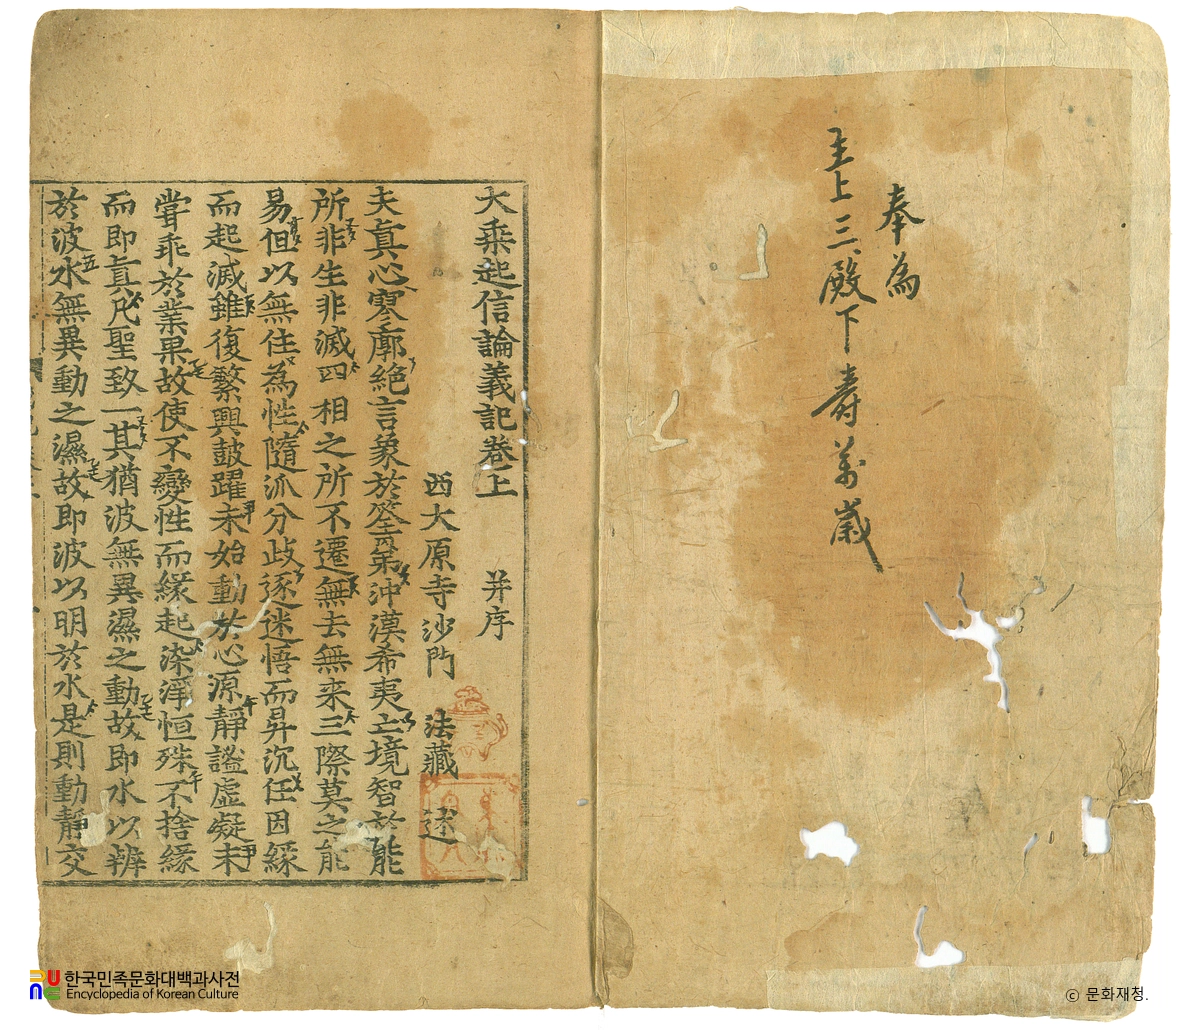 奉為
主上三殿下壽萬歲
大乗起信論義記卷上 并序
西大原寺沙門 法藏 述
夫眞心寥廓絶言象於筌苐沖漠希夷亡境智於能
所非生非滅四相之所不遷無去無来三際莫之能
易但以無住為性隨派分歧逐迷悟而昇沉任因緣
而起滅雖復繁興鼓躍未始動於心源靜謐虛凝未
甞乖於業果故使不變性而緣起染淨恒殊不捨緣
而即眞凡聖致一其猶波無異濕之動故即水以辨
於波水無異動之濕故即波以明於水是則動靜交
한국민족문화대백과사전
Encyclopedia of Korean Culture
ⓒ 문화재청.